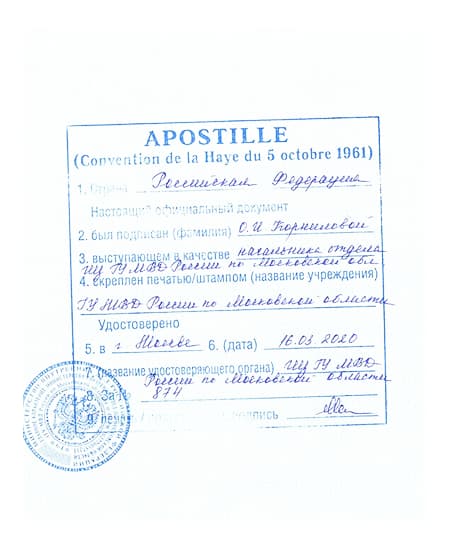 APOSTILLE
(Convention de la Haye du 5 octobre 1961)
1. Страна Российская Федерация
Настоящий официальный документ
2. был подписан (фамилия) О.И. Корниловой
3. выступающем в качестве начальника отдела
ИЦ ГУ МВД России по Московской обл.
4. скреплен печатью/штампом (название учреждения)
ГУ МВД России по Московской области
Удостоверено
5. в г Москве 6. (дата) 16.03.2020
7. (название удостоверяющего органа) ИЦ ГУ МВД
России по Московской области
8. За № 874
9. печать подпись